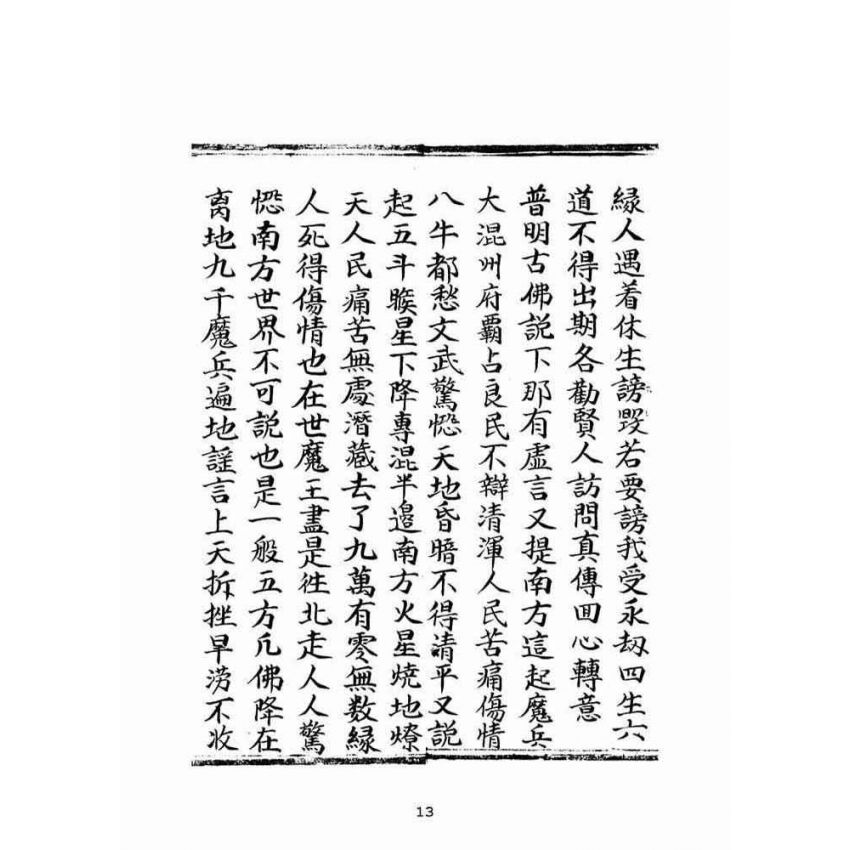 緣人遇着休生謗毀若要謗我受永劫四生六
道不得出期各勸賢人訪問真傳囬心轉意
普明古佛説下那有虛言又提南方這起魔兵
大混州府霸占良民不辯清渾人民苦痛傷情
八牛都愁文武驚惚天地昏暗不得清平又説
起五斗睺星下降專混半邉南方火星燒地燎
天人民痛苦無處潛藏去了九萬有零無数緣
人死得傷情也在世魔王盡是徃北走人人驚
惚南方世界不可説也是一般五方凢佛降在
离地九千魔兵遍地謡言上天拆挫旱澇不收
13